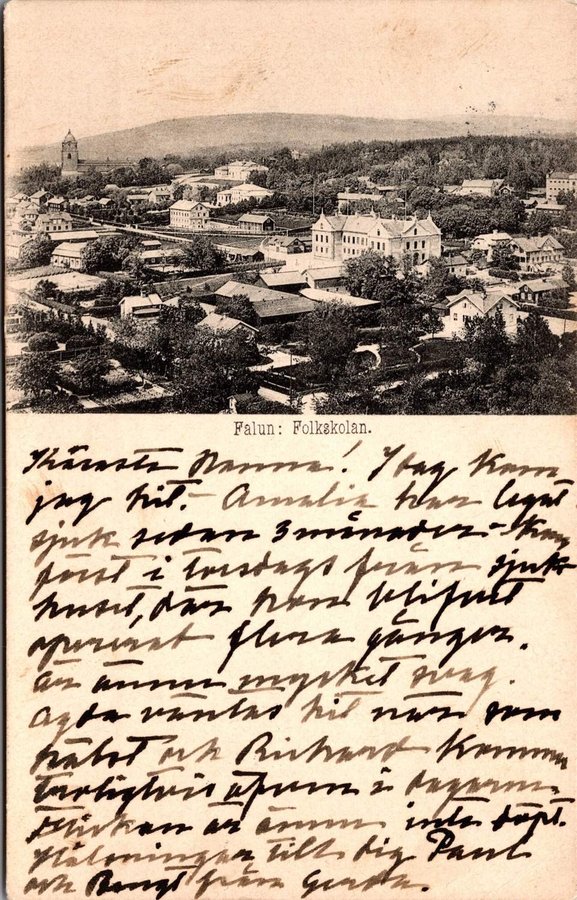 Falun: Folkskolan.
Käraste Nanna! I dag kom
jag hit. - Amalia har legat
sjuk sedan 3 månader - kom
först i torsdags från sjuk-
huset, där hon blifvit
opererat flera gånger.
Är ännu mycket svag.
Agda väntas hit när som
hälst och Rickard kommer
troligtvis äfven i dagarne.
Flickan är ännu inte döpt.
Hälsningar till dig Paul
och Bengt från Gerda.